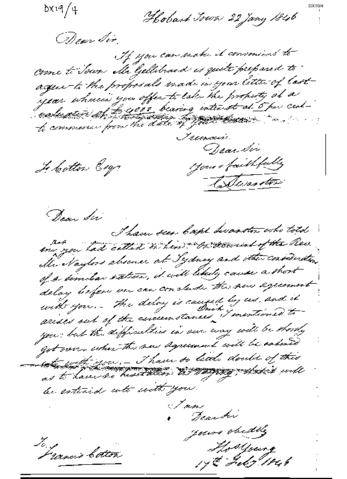 DX19/4
DX19/4
Hobart Town 22 Jany 1846
Dear Sir.
If you can make it convenient to
come to Town Mr Gellibrand is quite prepared to
agree to the proposals made in your letter of last
year wherein you offer to take the property at a
bearing interest at 5 per cent
to commence from the date of your
I remain
Dear Sir
F Cotton Esqr
Yours faithfully
C Swanston
Dear Sir
I have seen Capt Swanston who told
me you had called on him. On account of the Revd
Mr Naylors absence at Sydney and other considerations
of a similar nature, it will likely cause a short
delay before we can conclude the new agreement
with you. The delay is caused by us, and it
arises out of the circumstances which I mentioned to
you: but the difficulties in our way will be shortly
got over when the new agreement will be entered
into with you. I have so little doubt of this
as to have no hesitation in saying that it will
be entered into with you.
I am
Dear Sir
Yours obedtly
Thos Young
17th Feby 1846
To
Francis Cotton